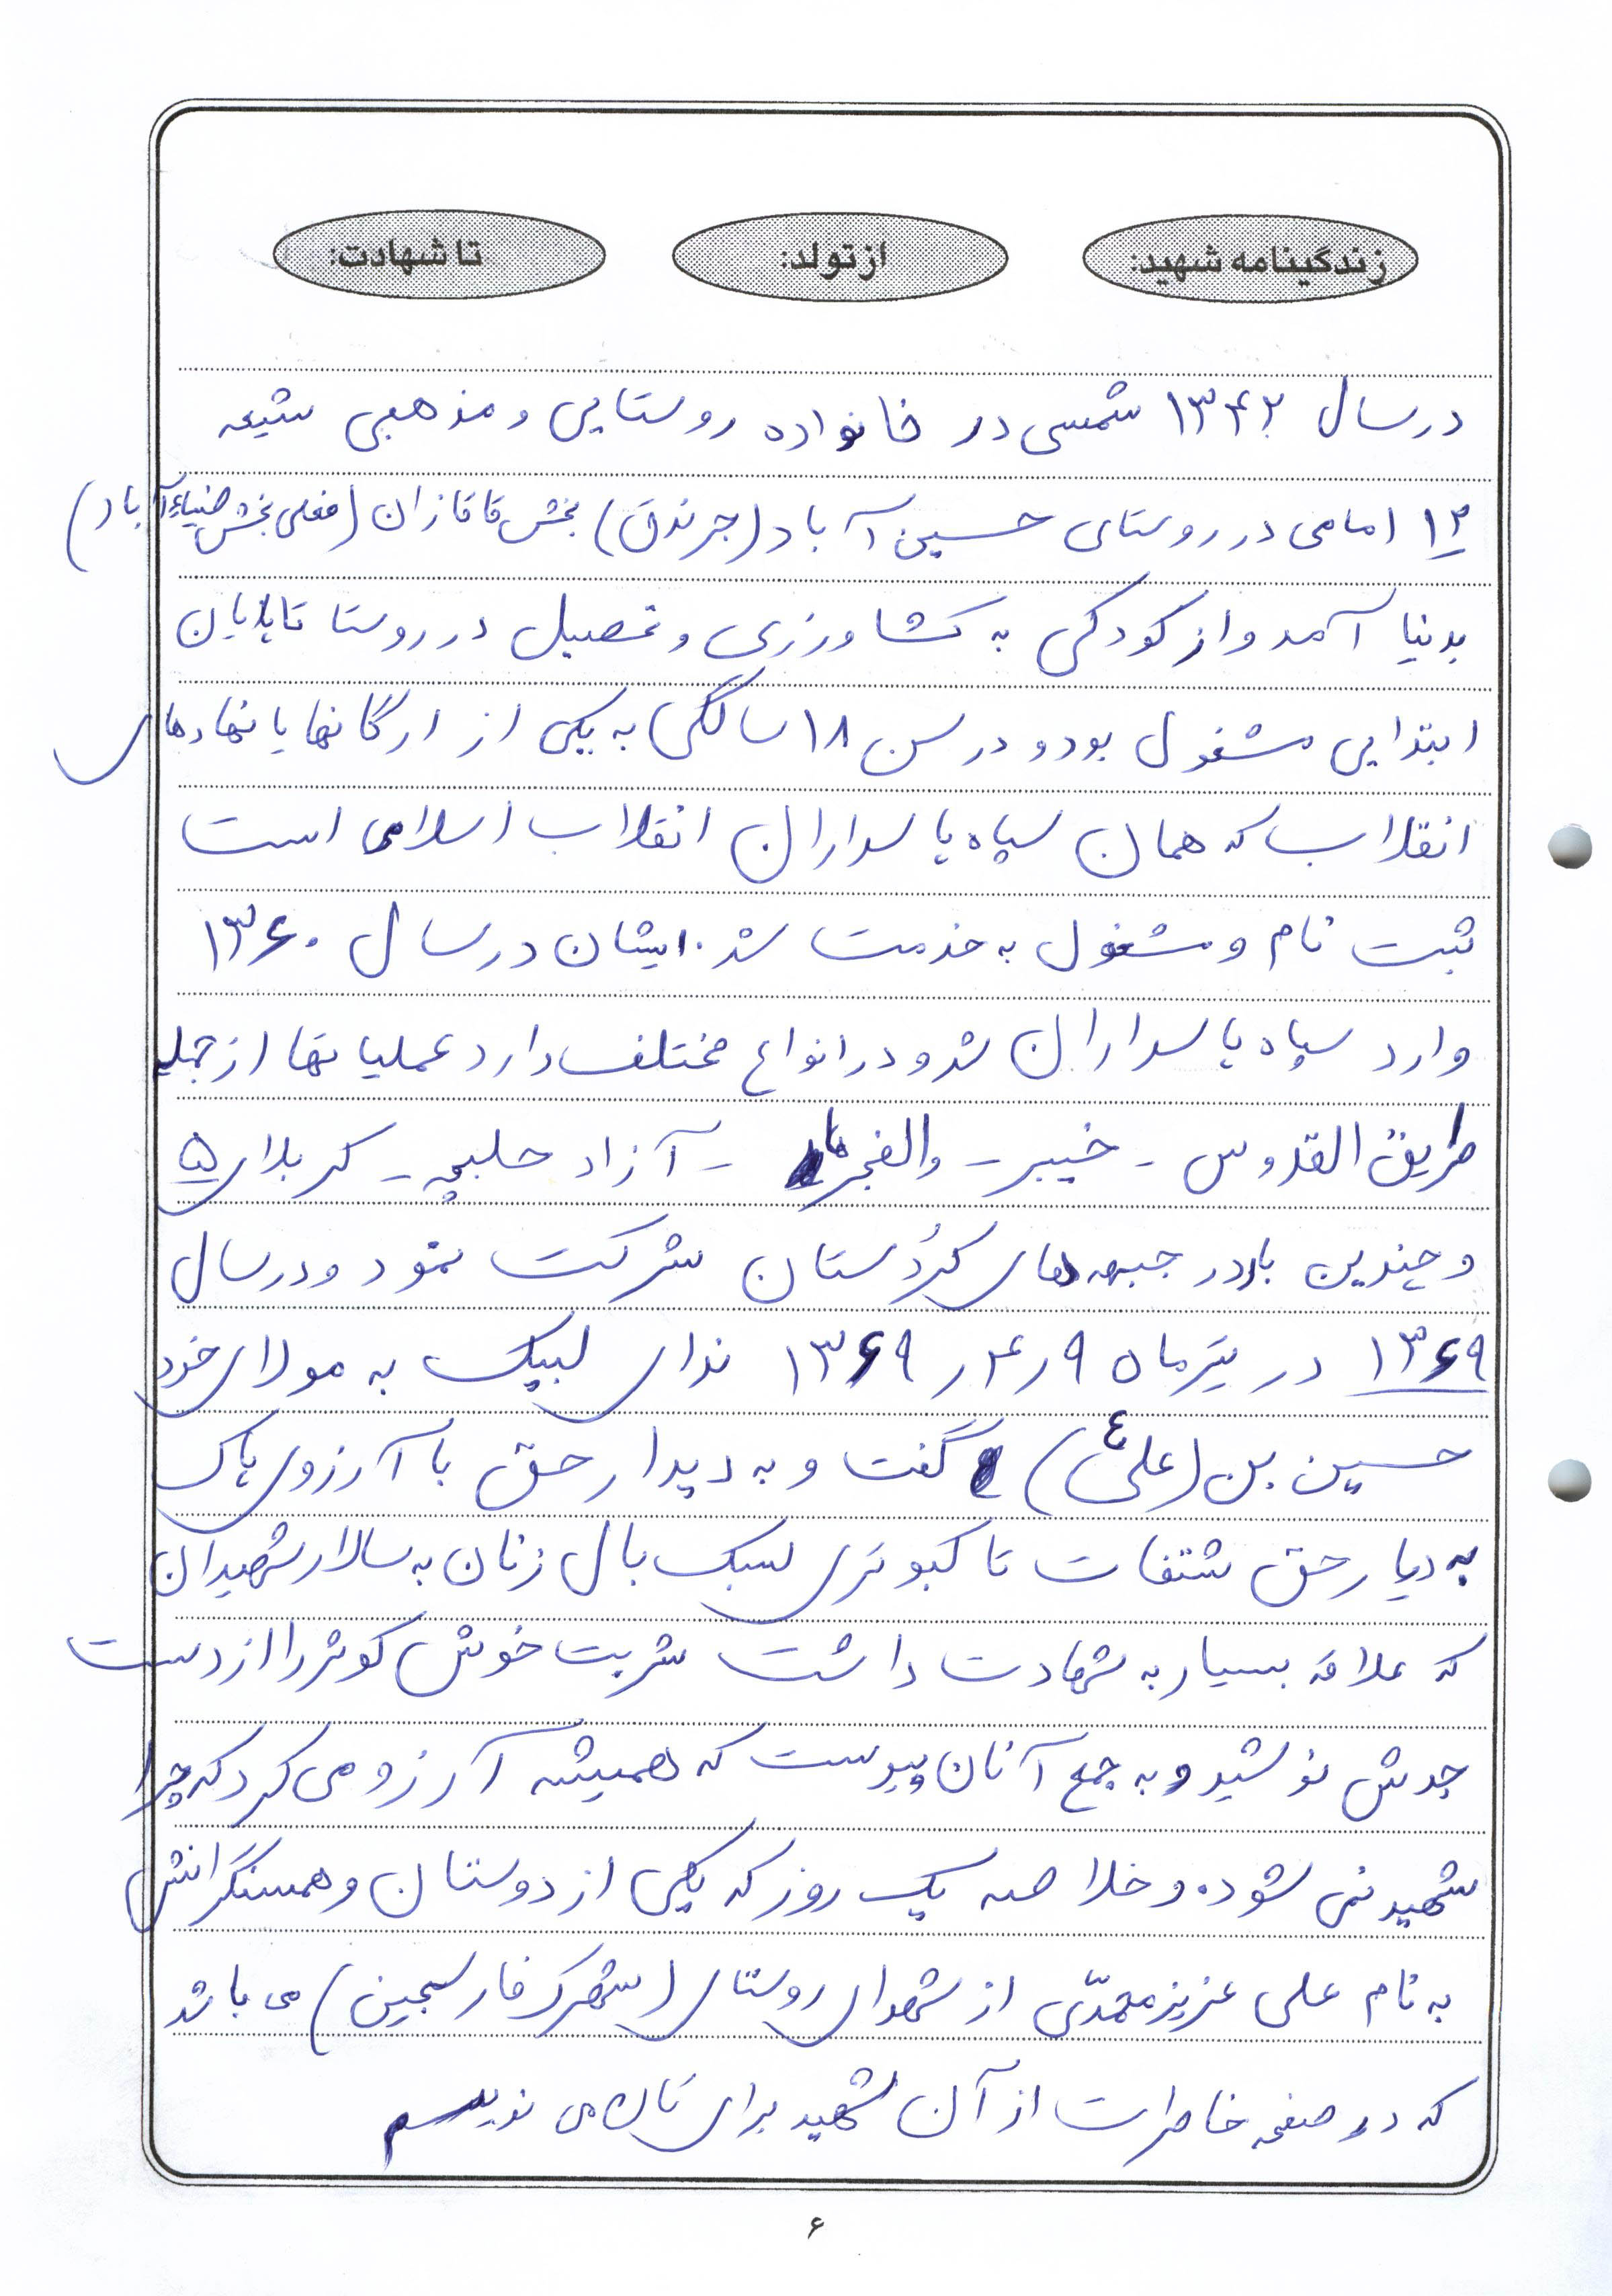 زندگینامه شهید: از تولد: تا شهادت:
در سال ۱۳۴۲ شمسی در خانواده روستایی و مذهبی شیعه
۱۲ امامی در روستای حسین آباد (جرندق) بخش قاقازان (فعلی بخش ضیاءآباد)
بدنیا آمد و از کودکی به کشاورزی و تحصیل در روستا تا پایان
ابتدایی مشغول بود و در سن ۱۸ سالگی به یکی از ارگانها یا نهادهای
انقلاب که همان سپاه پاسداران انقلاب اسلامی است
ثبت نام و مشغول به خدمت شد. ایشان در سال ۱۳۶۰
وارد سپاه پاسداران شد و در انواع مختلف دارد عملیاتها از جمله
طریق القدوس - خیبر - والفجر - آزاد حلبچه - کربلای ۵
و چندین بار در جبهه های کُردُستان شرکت نمود و در سال
۱۳۶۹ در تیرماه ۹ر۴ر۱۳۶۹ ندای لبیک به مولای خود
حسین بن (علی ع) گفت و به دیدار حق با آرزوی پاک
به دیار حق شتفات تا کبوتری سبک بال زنان به سالار شهیدان
که علاقه بسیار به شهادت داشت شربت خوش کوثر را از دست
جدش نوشید و به جمع آنان پیوست که همیشه آرزو می کرد که چرا
شهید نمی شود. و خلاصه یک روز که یکی از دوستان و همسنگرانش
به نام علی عزیزمحمدّی از شهدای روستای (شهرک فارسجین) می باشد
که در صفحه خاطرات از آن شهید برای تان می نویسم
۶